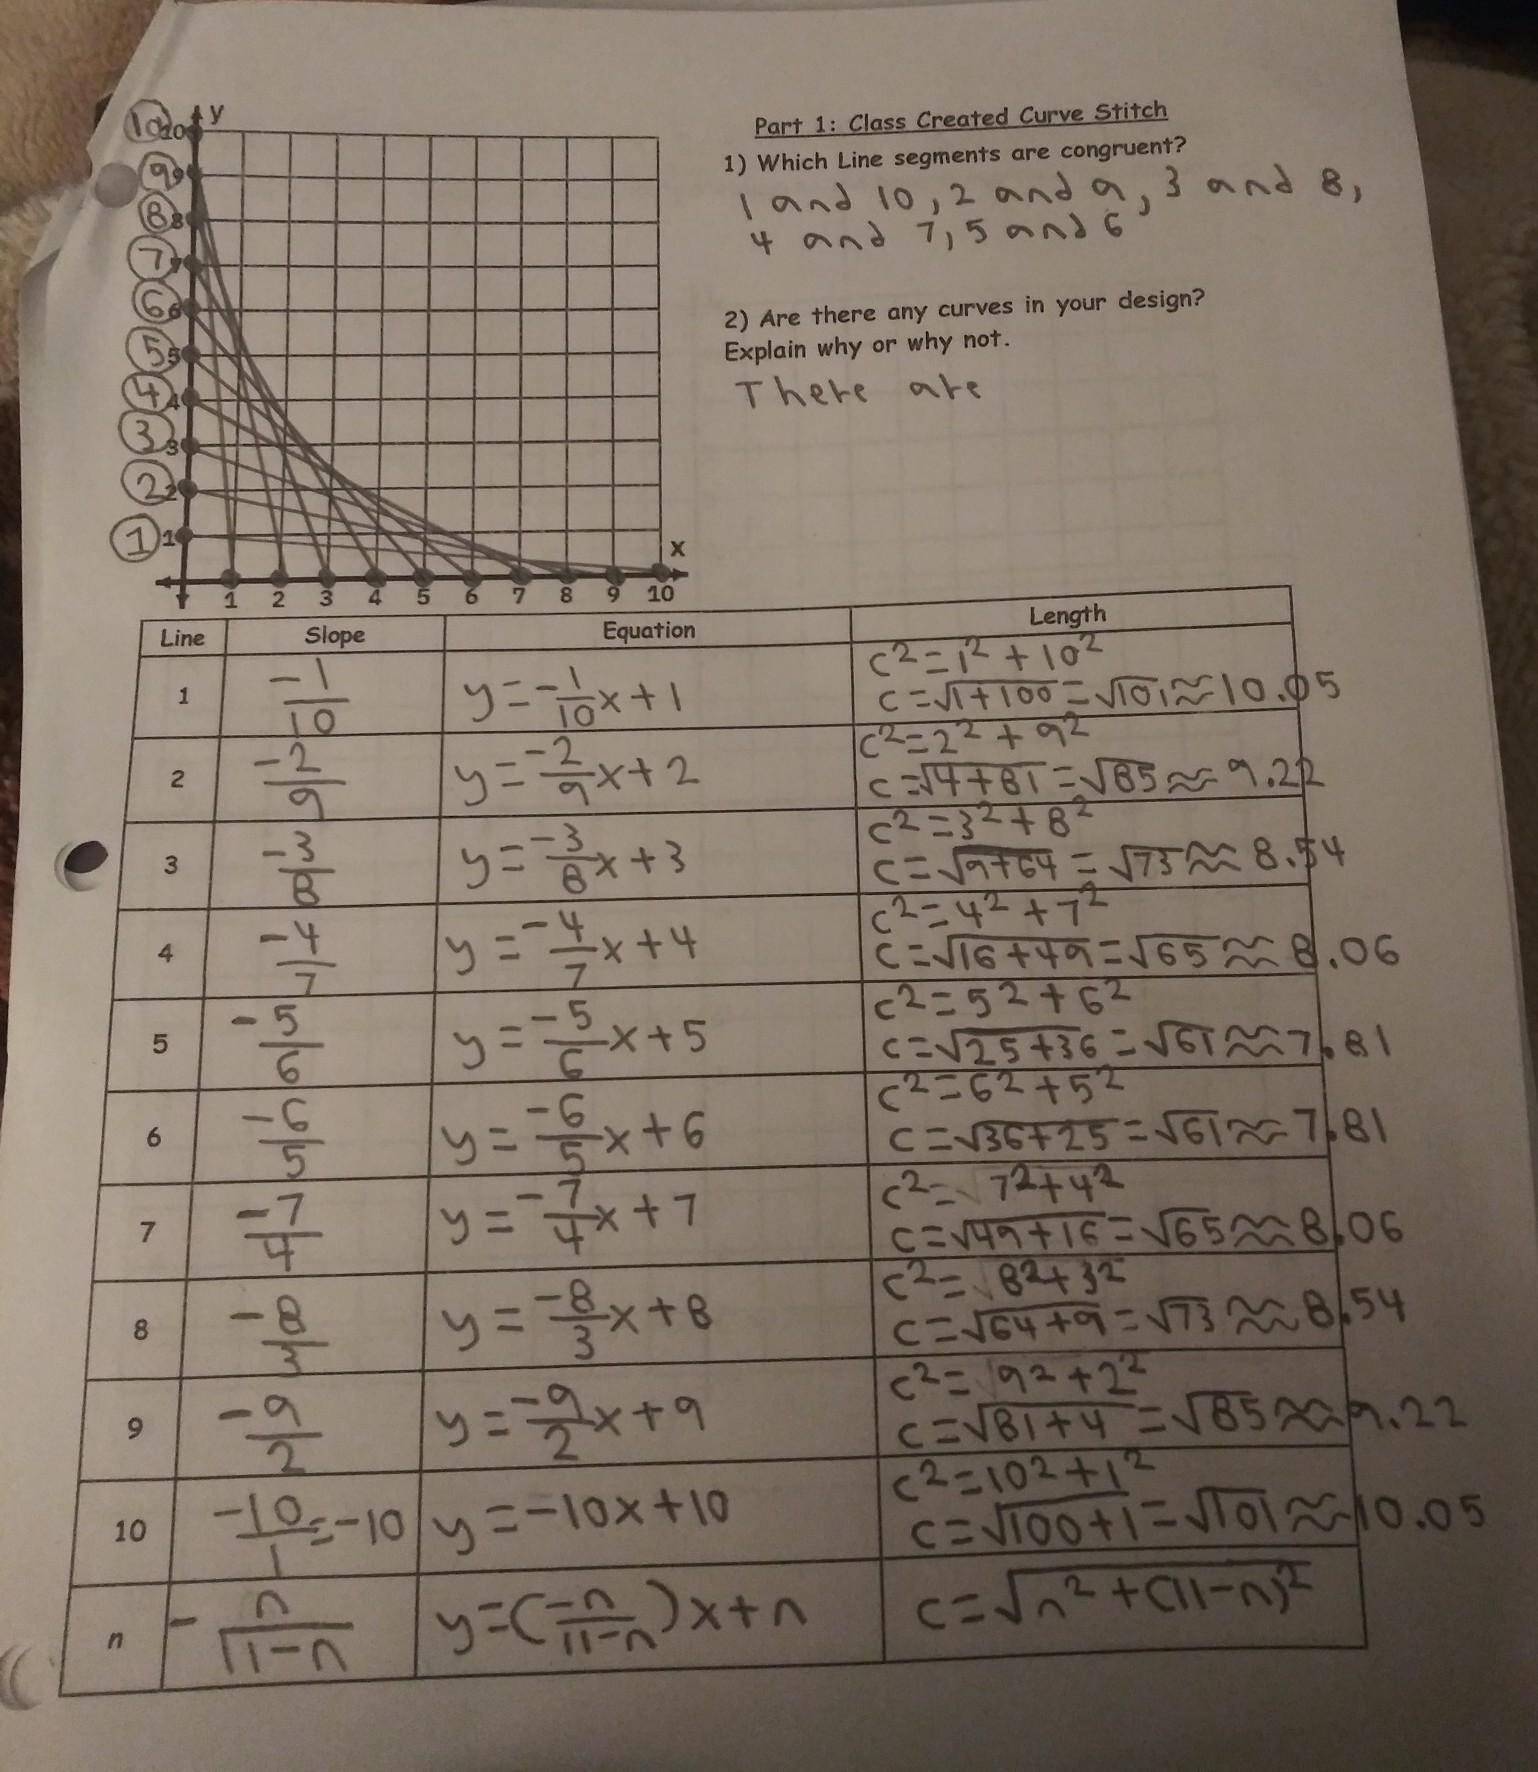 Part 1: Class Created Curve Stitch
1) Which Line segments are congruent?
1 and 10, 2 and 9, 3 and 8,
4 and 7, 5 and 6
2) Are there any curves in your design?
Explain why or why not.
There are
y
10 10
9 9
8 8
7 7
6 6
5 5
4 4
3 3
2 2
1 1
x
1 2 3 4 5 6 7 8 9 10
Line Slope Equation Length
1 -1/10 y = -1/10x + 1 c² = 1² + 10²
c = √1+100 = √101 ≈ 10.05
2 -2/9 y = -2/9x + 2 c² = 2² + 9²
c = √4+81 = √85 ≈ 9.22
3 -3/8 y = -3/8x + 3 c² = 3² + 8²
c = √9+64 = √73 ≈ 8.54
4 -4/7 y = -4/7x + 4 c² = 4² + 7²
c = √16+49 = √65 ≈ 8.06
5 -5/6 y = -5/6x + 5 c² = 5² + 6²
c = √25+36 = √61 ≈ 7.81
6 -6/5 y = -6/5x + 6 c² = 6² + 5²
c = √36+25 = √61 ≈ 7.81
7 -7/4 y = -7/4x + 7 c² = 7² + 4²
c = √49+16 = √65 ≈ 8.06
8 -8/3 y = -8/3x + 8 c² = 8² + 3²
c = √64+9 = √73 ≈ 8.54
9 -9/2 y = -9/2x + 9 c² = 9² + 2²
c = √81+4 = √85 ≈ 9.22
10 -10/1 = -10 y = -10x + 10 c² = 10² + 1²
c = √100+1 = √101 ≈ 10.05
n -n/11-n y = (-n/11-n)x + n c = √n² + (11-n)²